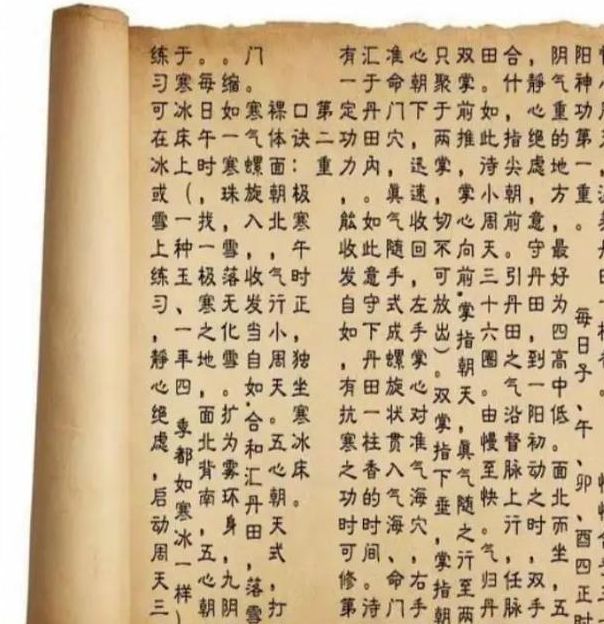 阳神功第一重。 每日子、午、卯、酉四正时
阴气重的地方，最好为四高中低。面北而坐，五
，静心绝虑，意守丹田，到一阳初动之时，双手
合什，指尖朝前。引丹田之气沿督脉上行，任脉
田。如此诗小周天三十六圈。由慢至快。气归丹
双掌前推，掌心向前，掌指朝天，真气随之行至两
只聚于两掌，切不可放出）。双掌指下垂，掌指朝
心朝下，迅速收回，左手掌心对准气海穴，右手
准命门穴，真气随手式成螺旋状贯入气海、命门
汇于丹田内。如此意守下丹田一柱香的时间。诗
有一定功力，能收发自如，有抗寒之功时可修第
第二重
口诀：极寒午时正，独坐寒冰床。
裸体面朝北，气行小周天。五心朝天式，打
门 寒气螺旋入，收发当自如，合和汇丹田，落雪
。缩。如一寒珠，雪落无化雪。扩为雾环身，九阴
。每日午时，找一极寒之地，面北背南，五心朝
于寒冰床上（一种玉、一年四季都如寒冰一样）
练习可在冰或雪上练习，静心绝虑，启动周天三